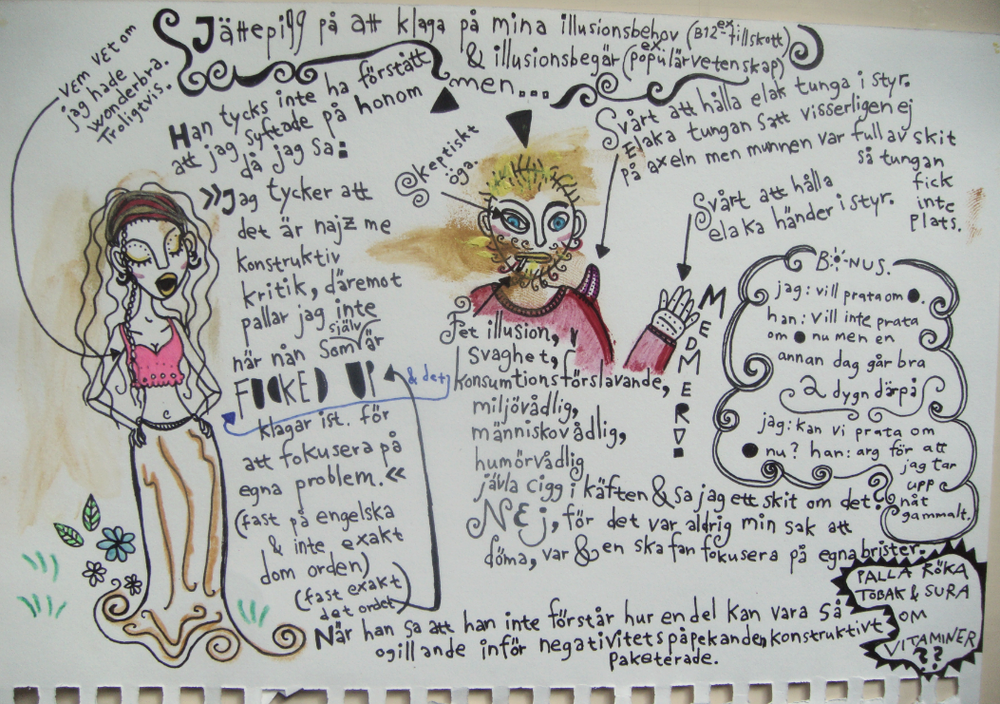 Jättepigg på att klaga på mina illusionsbehov (ex B12-tillskott)
& illusionsbegär (ex populärvetenskap)
men...
vem vet om
jag hade
wonderbra.
Troligtvis.
Han tycks inte ha förstått
att jag syftade på honom
då jag sa:
»Jag tycker att
det är najz me
konstruktiv
kritik, däremot
pallar jag inte
när nån som själv är
FUCKED UP
& det
klagar ist. för
att fokusera på
egna problem.«
(fast på engelska
& inte exakt
dom orden)
(fast exakt
det ordet)
Skeptiskt
öga.
Svårt att hålla elak tunga i styr.
Elaka tungan satt visserligen ej
på axeln men munnen var full av skit
så tungan
fick
inte
plats.
Svårt att hålla
elaka händer i styr.
MEDMERA!
Fet illusion,
svaghet,
konsumtionsförslavande,
miljövådlig,
människovådlig,
humörvådlig
jävla cigg i käften & sa jag ett skit om det?
NEj, för det var aldrig min sak att
döma, var & en ska fan fokusera på egna brister.
BONUS.
jag: vill prata om ●.
han: vill inte prata
om ● nu men en
annan dag går bra
2 dygn därpå
jag: kan vi prata om
● nu? han: arg för att
jag tar
upp
nåt
gammalt.
När han sa att han inte förstår hur en del kan vara så
ogillande inför negativitetspåpekanden, konstruktivt
paketerade.
PALLA RÖKA
TOBAK & SURA
OM
VITAMINER
??